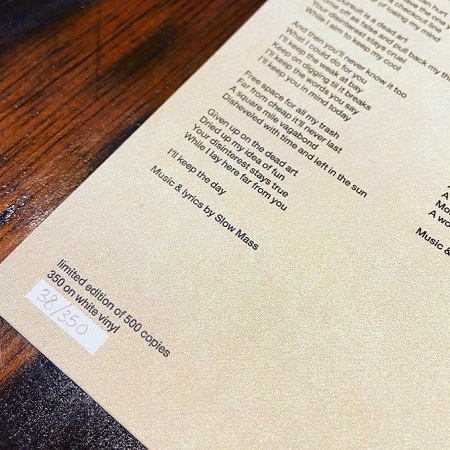 hurt
have an one
e checkout line
of losing my mind
ursuit is a dead art
me as false and pull back my
Your disinterest stays cruel
While I aim to keep my cool
And then you'll never know it too
What I could do for you
I'll keep the weak at bay
Keep on digging til it breaks
I'll keep the words you say
I'll keep you in mind today
Free space for all my trash
Far from cheap it'll never last
A square mile vagabond
Disheveled with time and left in the sun
Given up on the dead art
Dried up my idea of fun
Your disinterest stays true
While I lay here far from you
I'll keep the day
Music & lyrics by Slow Mass
A
A
Mo
A wo
Music &
limited edition of 500 copies
350 on white vinyl
38/350